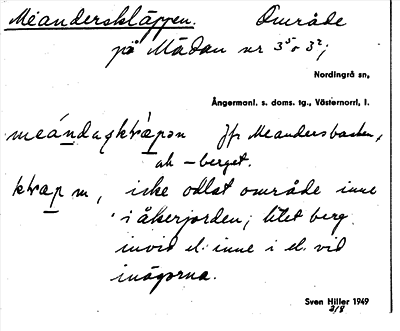 Meanderskläppen. Område
på Mädan nr 3⁵ o 3²;
Nordingrå sn,
Ångermanl. s. doms. tg., Västernorrl. l.
Jfr Meandersbacken,
och -berget.
m, icke odlat område inne
i åkerjorden; litet berg
invid el. inne i el. vid
inägorna.
Sven Hiller 1949
2/8